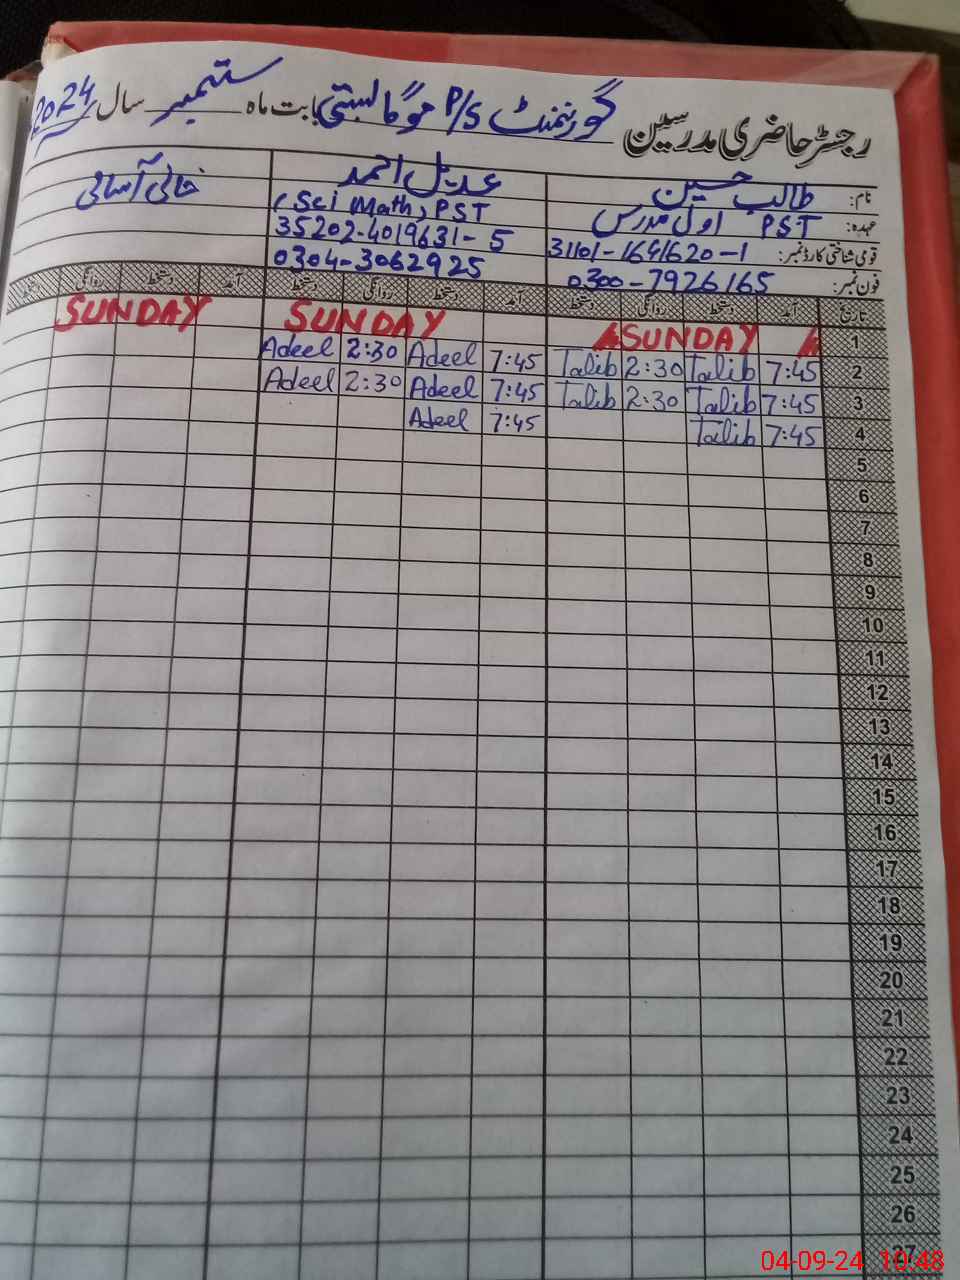 رجسٹر حاضری مدرسین گورنمنٹ P/S موگا بستی بابت ماہ ستمبر سال 2024
نام: طالب حسین عدیل احمد خالی آسامی
عہدہ: PST اول مدرس (Sci Math) PST
قومی شناختی کارڈ نمبر: 31101-1641620-1 35202-4019631-5
فون نمبر: 0300-7926165 0304-3062925
تاریخ آمد دستخط روانگی دستخط آمد دستخط روانگی دستخط آمد دستخط روانگی دستخط
1 SUNDAY SUNDAY SUNDAY
2 7:45 Talib 2:30 Talib 7:45 Adeel 2:30 Adeel
3 7:45 Talib 2:30 Talib 7:45 Adeel 2:30 Adeel
4 7:45 Talib 7:45 Adeel
5
6
7
8
9
10
11
12
13
14
15
16
17
18
19
20
21
22
23
24
25
26
27
04-09-24 10:48